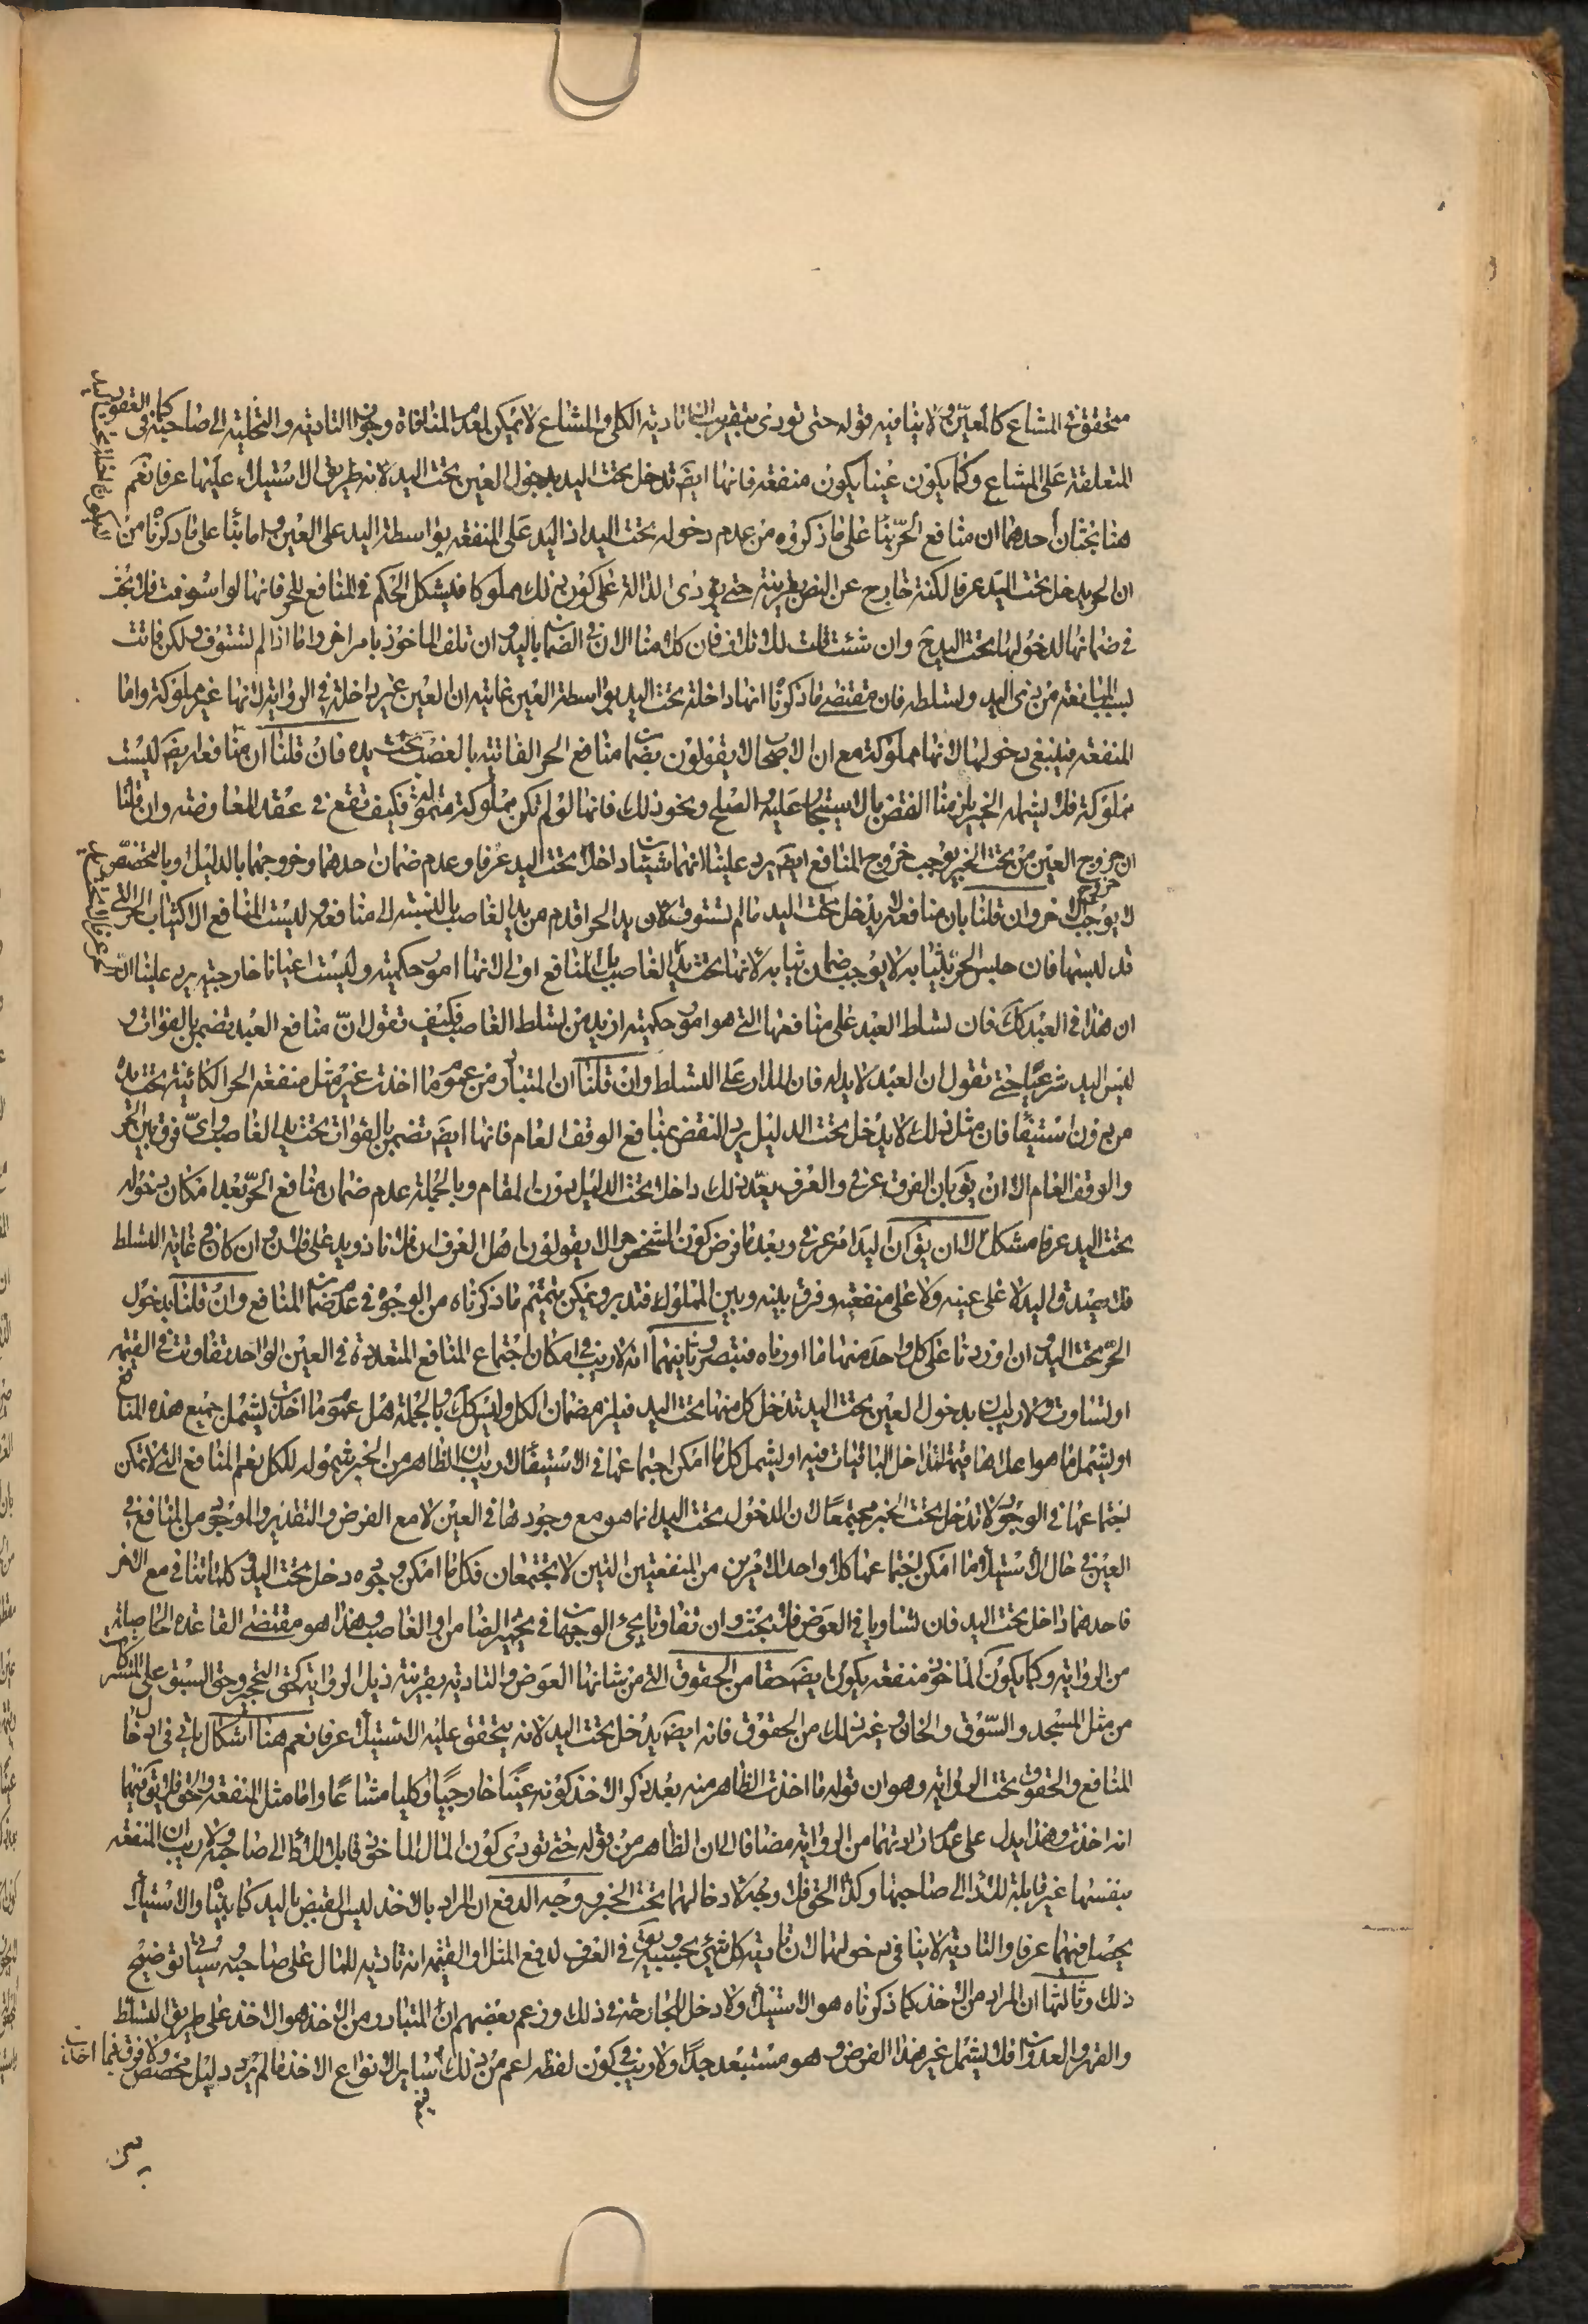 متحققة في المشاع كالمعين ولا ينافيه قوله حتى تؤدي بتقريب ان تادية الكلي والمشاع لا يمكن لعدم المنافاة وجواز التادية والتخلية الى صاحبه كما في العقود
المتعلقة على المشاع وكما يكون عينا يكون منفعة فانها ايضَ تدخل تحت اليد بدخول العين تحت اليد لانه طريق الاستيلاء عليها عرفا نعم
هنا بحثان أحدهما ان منافع الحرّ بناً على ما ذكروه من عدم دخوله تحت اليد اذ اليد على المنفعة بواسطة اليد على العين واما بناً على ما ذكرنا من
ان الحر يدخل تحت اليد عرفا لكنه خارج عن النص بقرينة حتى يؤدي الدالة على كون ذلك مملوكا فيشكل الحكم في المنافع للحر فانها لو استوفت فلا بحث
في ضمانها لدخولها تحت اليد ح وان شئت قلت لاتلاف فان كلامنا الان في الضمان باليد وان تلف الماخوذ بامر اخر واما اذا لم تستوف ولكن فاتت
بسبب المنافعة من ذي اليد وتسلطه فان مقتضى ما ذكرنا انها داخلة تحت اليد بواسطة العين غايته ان العين غير داخلة في الرواية لانها غير مملوكة واما
المنفعة فينبغي دخولها لانها مملوكة مع ان الاصحاب لا يقولون بضمان منافع الحر الفائتة بالغصب تحت يده فان قلنا ان منافعه ايضَ ليست
مملوكة فلا يشمله الخبر يلزمنا النقض بالاستيجار عليه والصلح ونحو ذلك فانها لو لم تكن مملوكة متمولة فكيف تقع في عقد المعاوضة وان قلنا
ان خروج العين من تحت الخبر يوجب خروج المنافع ايضَ يرد علينا انهما شيئان داخلان تحت اليد عرفا وعدم ضمان احدهما وخروجها بالدليل او بالتخصص
لا يوجب خروج الاخر وان قلنا بان منافعه لا يدخل تحت اليد ما لم تستوف لان يد الحر اقدم من يد الغاصب بالنسبة الى منافعه وليست المنافع الا كثياب الحر التي
قد لبسها فان حبس الحر بثيابه لا يوجب ضمان ثيابه لانها تحت يده لا الغاصب بل المنافع اولى لانها امور حكمية وليست اعيانا خارجية يرد علينا
ان هذا في العبد كك فان تسلط العبد على منافعها التي هو امور حكمية ازيد من تسلط الغاصب فكيف تقول انّ منافع العبد تضمن بالفوات و
ليس اليد شرعيا حتى تقول ان العبد لا يد له فان المدار على التسلط وان قلنا ان المتبادر من عموم ما اخذت غير مثل منفعة الحر الكائنة تحت يده
من دون استيفاء فان مثل ذلك لا يدخل تحت الدليل يرد النقض بمنافع الوقف العام فانها ايضَ تضمن بالفوات تحت يد الغاصب واي فرق بين الحر
والوقف العام الا ان يقَ بان الفرق عرفي والعرف يعدّ ذلك داخلا تحت الدليل دون المقام وبالجملة عدم ضمان منافع الحر بعد امكان دخوله
تحت اليد عرفا مشكل الا ان يقَ ان اليد امر عرفي وبعد ما فرض كون الشخص حرا لا يقولون اهل العرف ان فلانا ذو يد على فلان وان كان في غاية التسلط
فلا يصدق اليد لا على عينه ولا على منفعته وفرق بينه وبين المملوك فتدبر ويمكن تتميم ما ذكرناه من الوجوه في عدم ضمان المنافع وان قلنا بدخول
الحر تحت اليد وان اوردنا على كل واحد منها ما اوردناه فتبصر وثانيهما انه لا ريب في امكان اجتماع المنافع المتعددة في العين الواحدة تفاوتت في القيمة
او تساوت ولا ريب ان بدخول العين تحت اليد تدخل كل منها تحت اليد فيلزم ضمان الكل وليس كك وبالجملة هل عموم ما اخذت يشمل جميع هذه المنافع
او يشمل ما هو اعلاها قيمة لتداخل الباقيات فيه او يشمل كل ما امكن اجتماعها في الاستيفاء لا ريب ان الظاهر من الخبر شموله للكل نعم المنافع التي لا تمكن
اجتماعها في الوجود لا تدخل تحت الخبر مجتمعا لان الدخول تحت اليد انما هو مع وجودها في العين لا مع الفرض والتقدير والموجود من المنافع في
العين في حال الاستيلاء ما امكن اجتماعها كلا وواحد الامرين من المنفعتين التين لا يجتمعان فكل ما امكن وجوده دخل تحت اليد وكلما تنافى مع الاخر
فاحدهما داخل تحت اليد فان تساويا في العوض فلا بحث وان تفاوتا يجئ الوجهان في تخيير الضامن او الغاصب وهذا هو مقتضى القاعدة الحاصلة
من الرواية وكما يكون الماخوذ منفعة يكون ايضَ حقا من الحقوق التي من شانها العوض والتادية بقرينة ذيل الرواية كحق التحجير وحق السبق على المشتركات
من مثل المسجد والسّوق والخان وغير ذلك من الحقوق فانه ايضَ يدخل تحت اليد لانه يتحقق عليه الاستيلاء عرفا نعم هنا اشكال باق في ادخال
المنافع والحقوق تحت الرواية وهو ان قوله ما اخذت الظاهر منه بعد ذكر الاخذ كونه عينا خارجيا او كليا مشاعا واما مثل المنفعة والحق فلا يقَ فيهما
انه اخذت وهذا يدل على عدم ارادتهما من الرواية مضافا الى ان الظاهر من قوله حتى تؤدي كون المال الماخوذ قابل الاداء الى صاحبه ولا ريب ان المنفعة
بنفسها غير قابلة للاداء الى صاحبها وكذا الحق فلا وجه لادخالهما تحت الخبر ووجه الدفع ان المراد بالاخذ ليس القبض باليد كما بيناه والاستيلاء
يحصل فيهما عرفا والتادية لا ينافي دخولهما لان تادية كل شيئ بحسبه ويقَ في العرف لدفع المثل او القيمة انه تادية للمال على صاحبه وسياتي توضيح
ذلك وثالثها ان المراد من الاخذ كما ذكرناه هو الاستيلاء ولا دخل للجارحة في ذلك وزعم بعضهم ان المتبادر من الاخذ هو الاخذ على طريق التسلط
والقهر والعدوان فلا يشمل غير هذا الفرض وهو مستبعد جدًا ولا ريب في كون لفظه اعم من ذلك فيعم ساير انواع الاخذ ما لم يرد دليل مخصص ولا فرق فيما اخذت